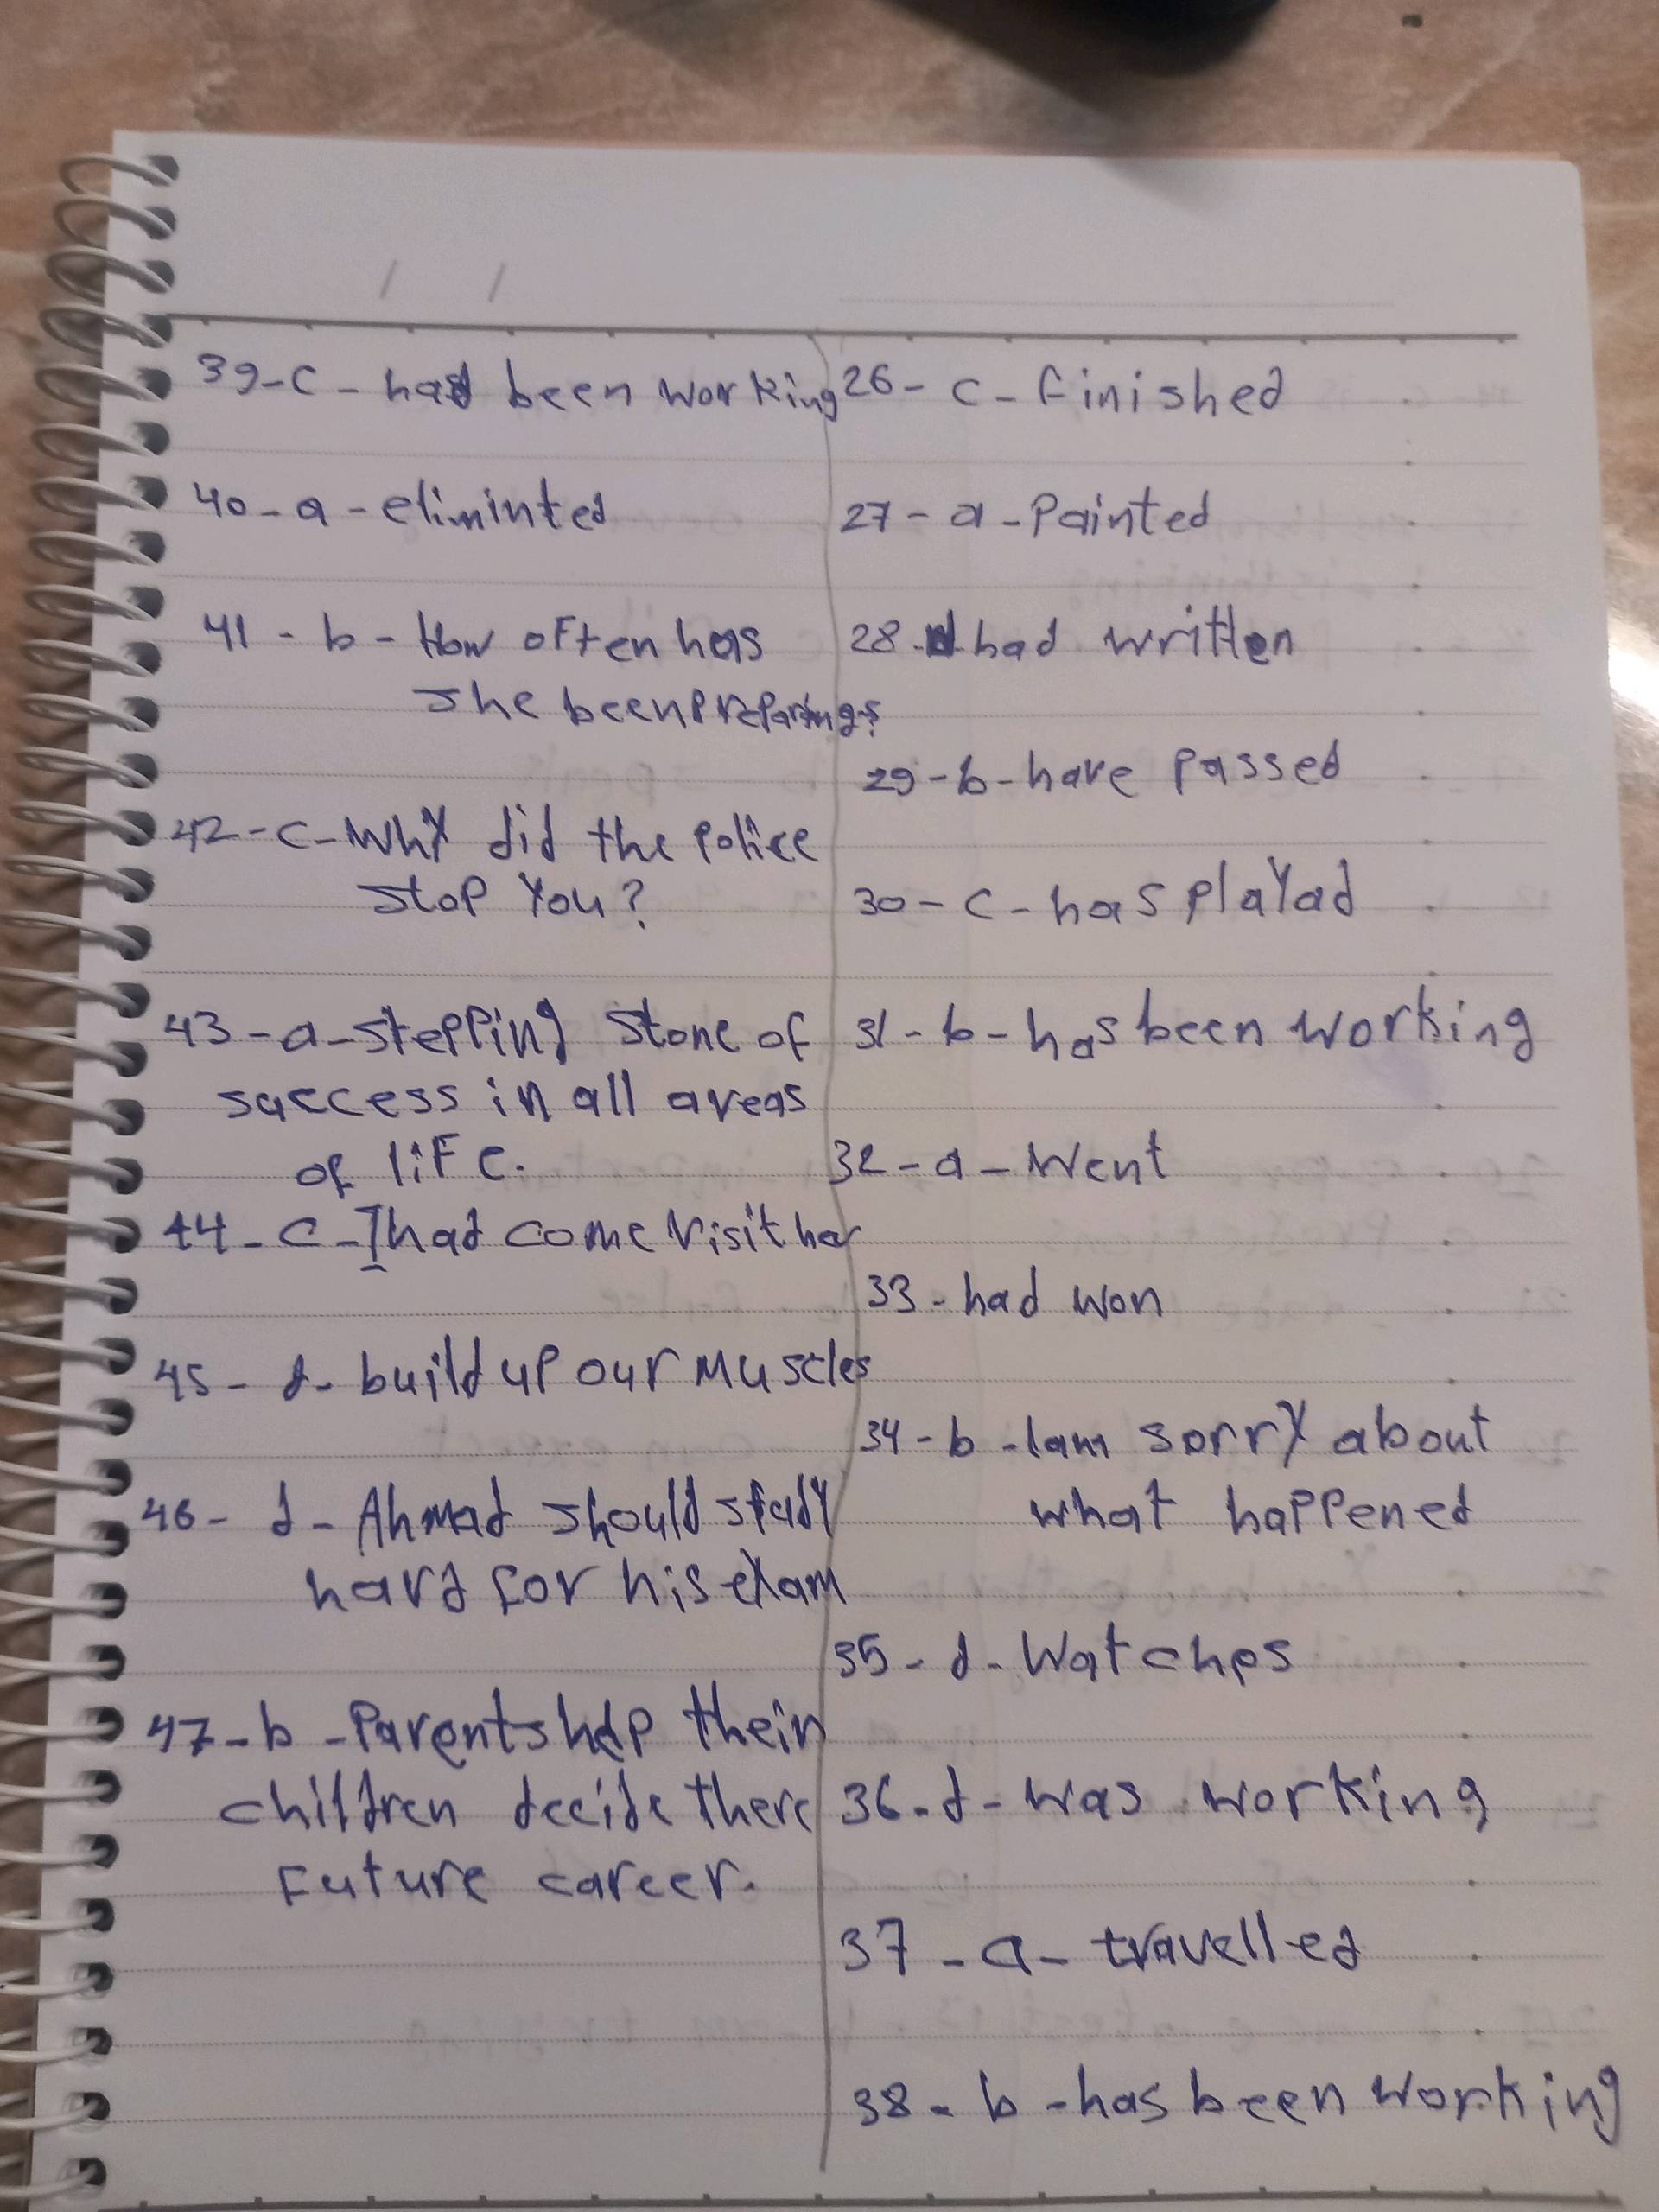 39-c- had been working
40-a-eliminted
41-b-How often has
she been preparing?
42-c-Why did the police
stop you?
43-a-stepping stone of
success in all areas
of life.
44-c-I had come visit her
45-d-build up our muscles
46-d-Ahmad should study
hard for his exam
47-b-Parents help their
children decide there
future career.
26-c-finished
27-a-Painted
28-d had written
29-b-have passed
30-c-has playad
31-b-has been working
32-a-went
33-had won
34-b-I am sorry about
what happened
35-d-watches
36-d-was working
37-a-travelled
38-b-has been working